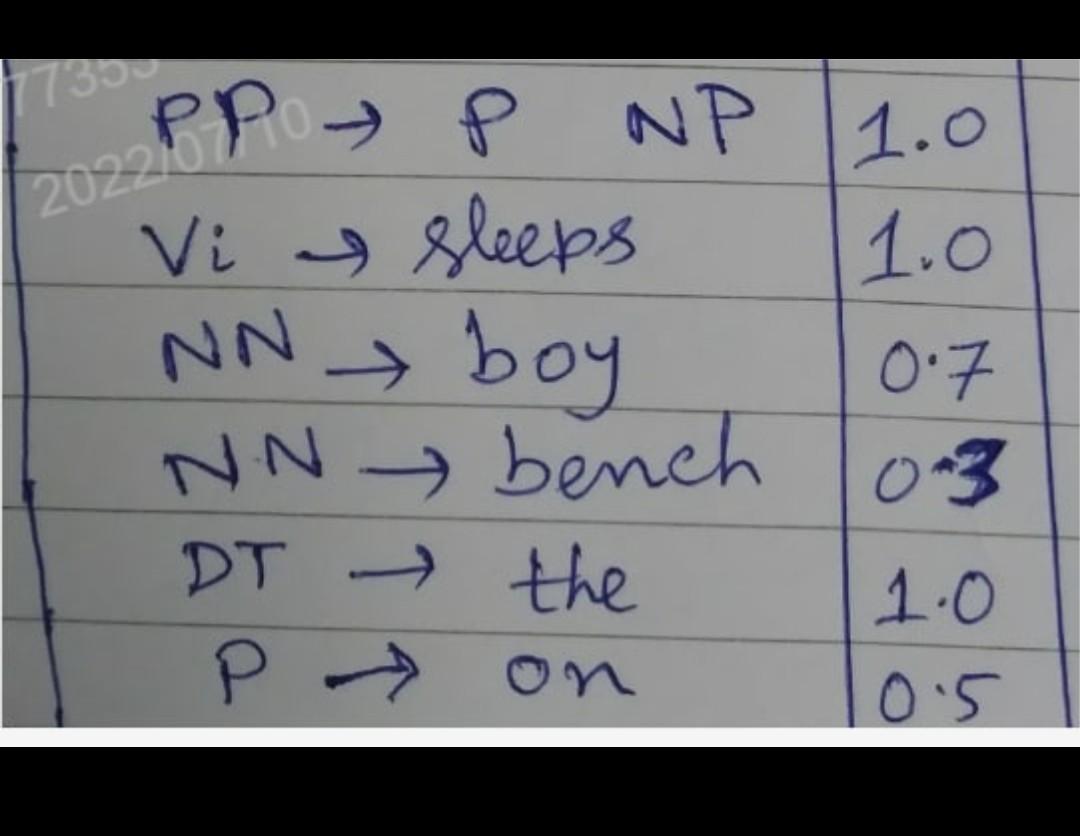 77353
2022/07/10
PP → P NP 1.0
Vi → sleeps 1.0
NN → boy 0.7
NN → bench 0.3
DT → the 1.0
P → on 0.5